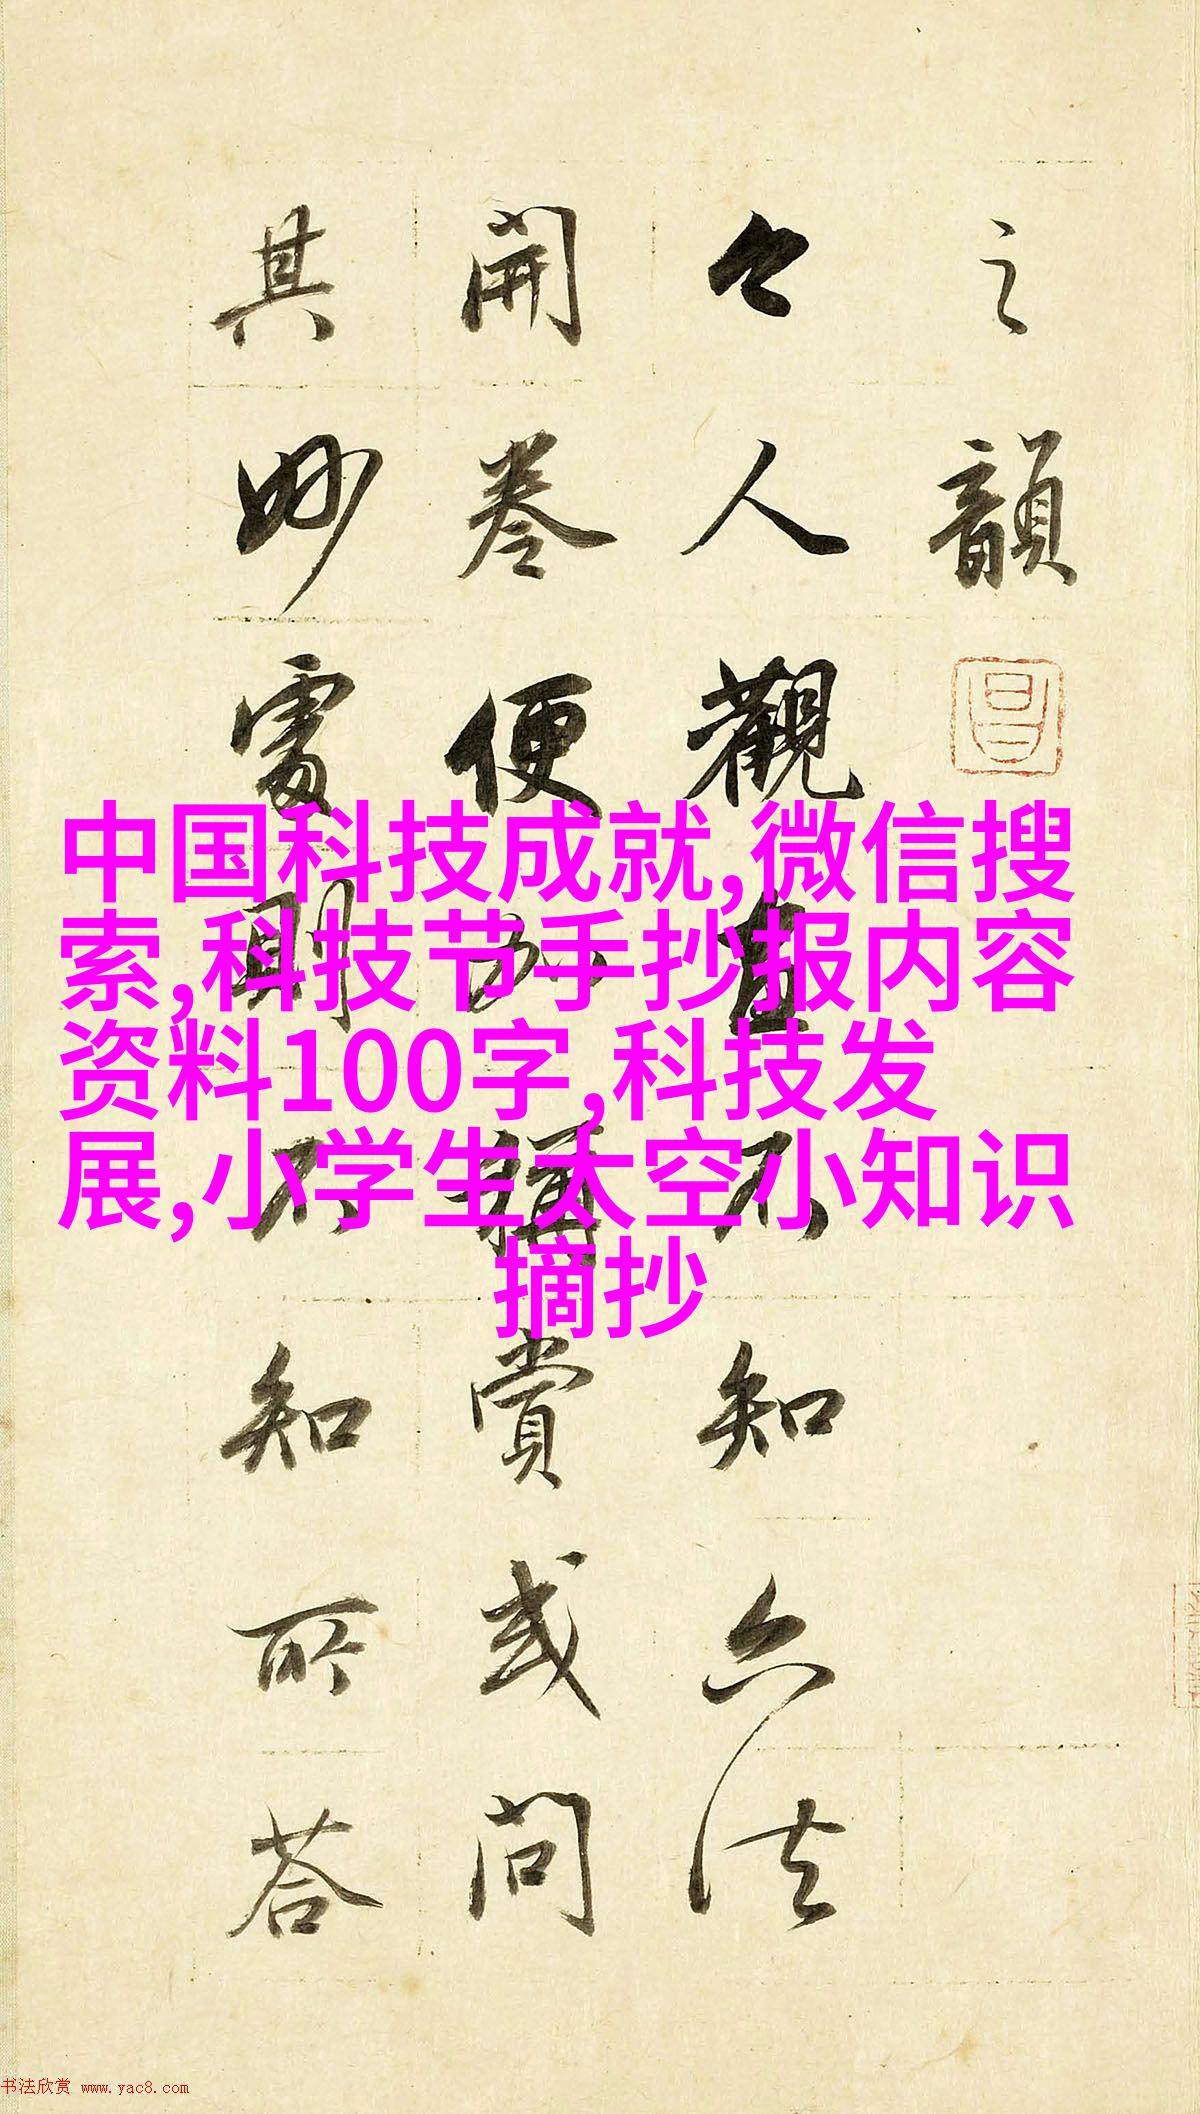 之韻
々人觀直不知六法
開卷便如稱賞或問
其妙處則不知所荅
中国科技成就,微信搜
索,科技节手抄报内容
资料100字,科技发
展,小学生太空小知识
摘抄
书法欣赏 www.yac8.com